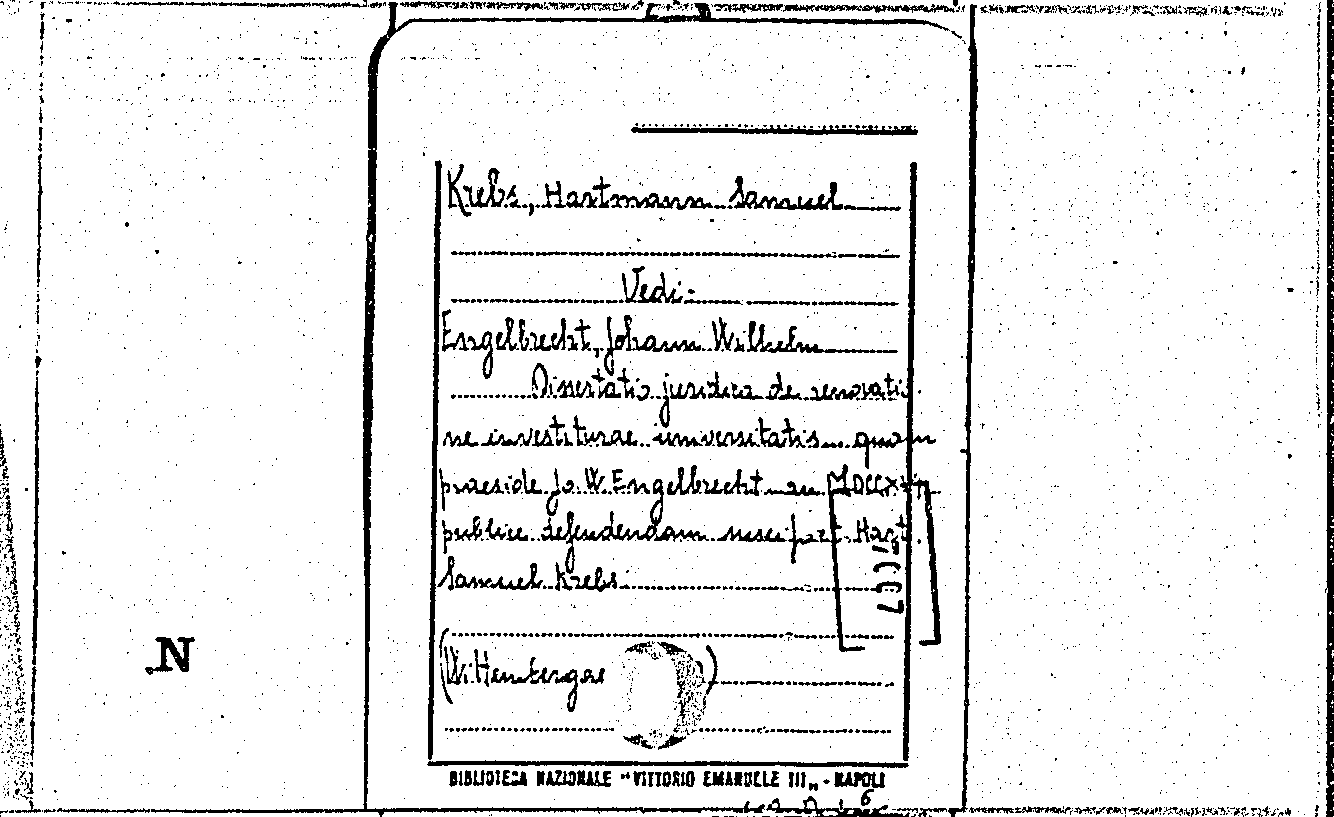 Krebs, Hartmann Samuel
Vedi:
Engelbrecht, Johann Wilhelm
Dissertatio juridica de renovatio
ne investiturae universitatis quam
praeside Jo. W. Engelbrecht an
publice defendendam suscipit Hart.
Samuel Krebs.
(Wittenbergae )
N
BIBLIOTECA NAZIONALE "VITTORIO EMANUELE III„ - NAPOLI